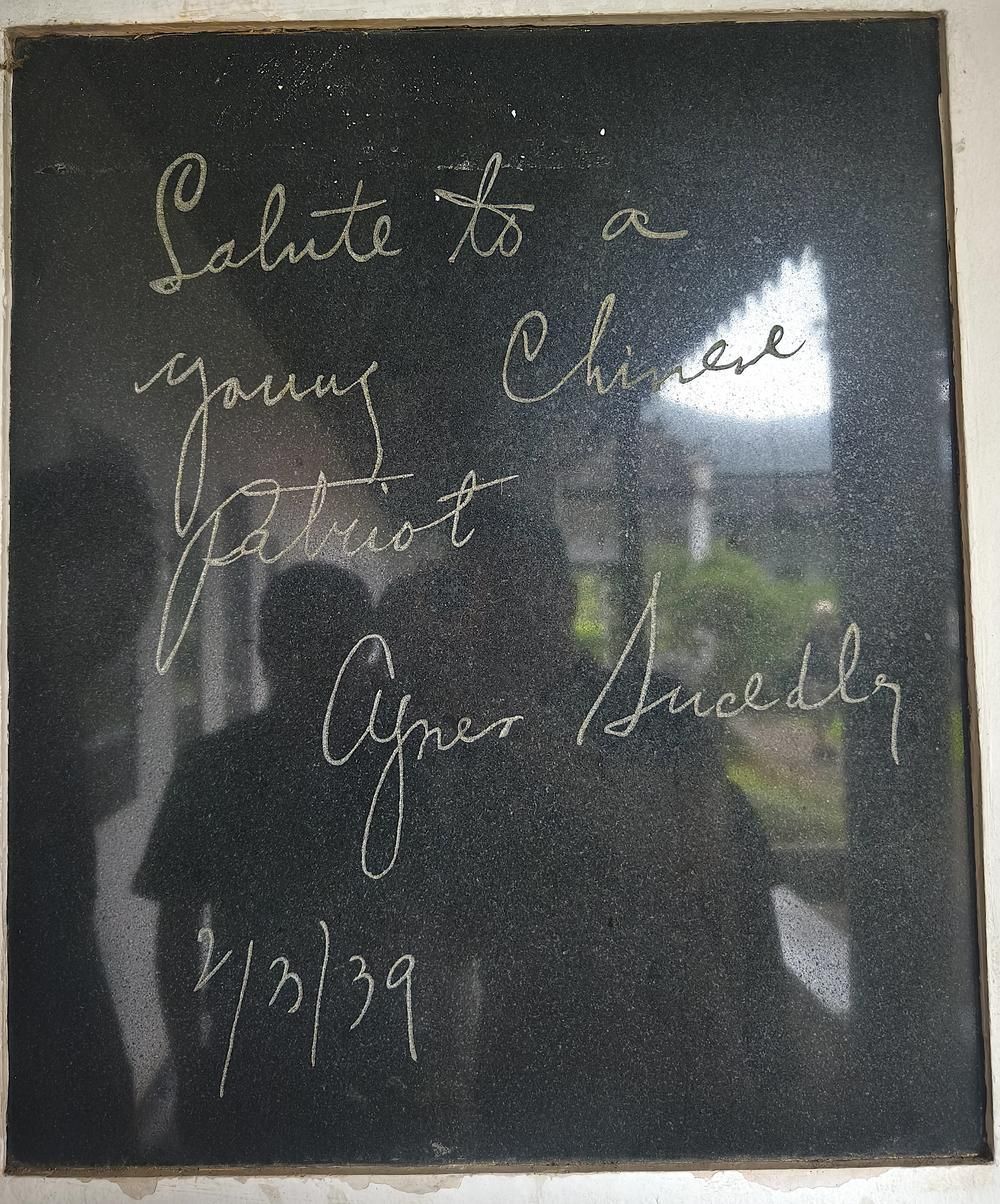 Salute to a
young Chinese
patriot
Agnes Smedley
2/3/39